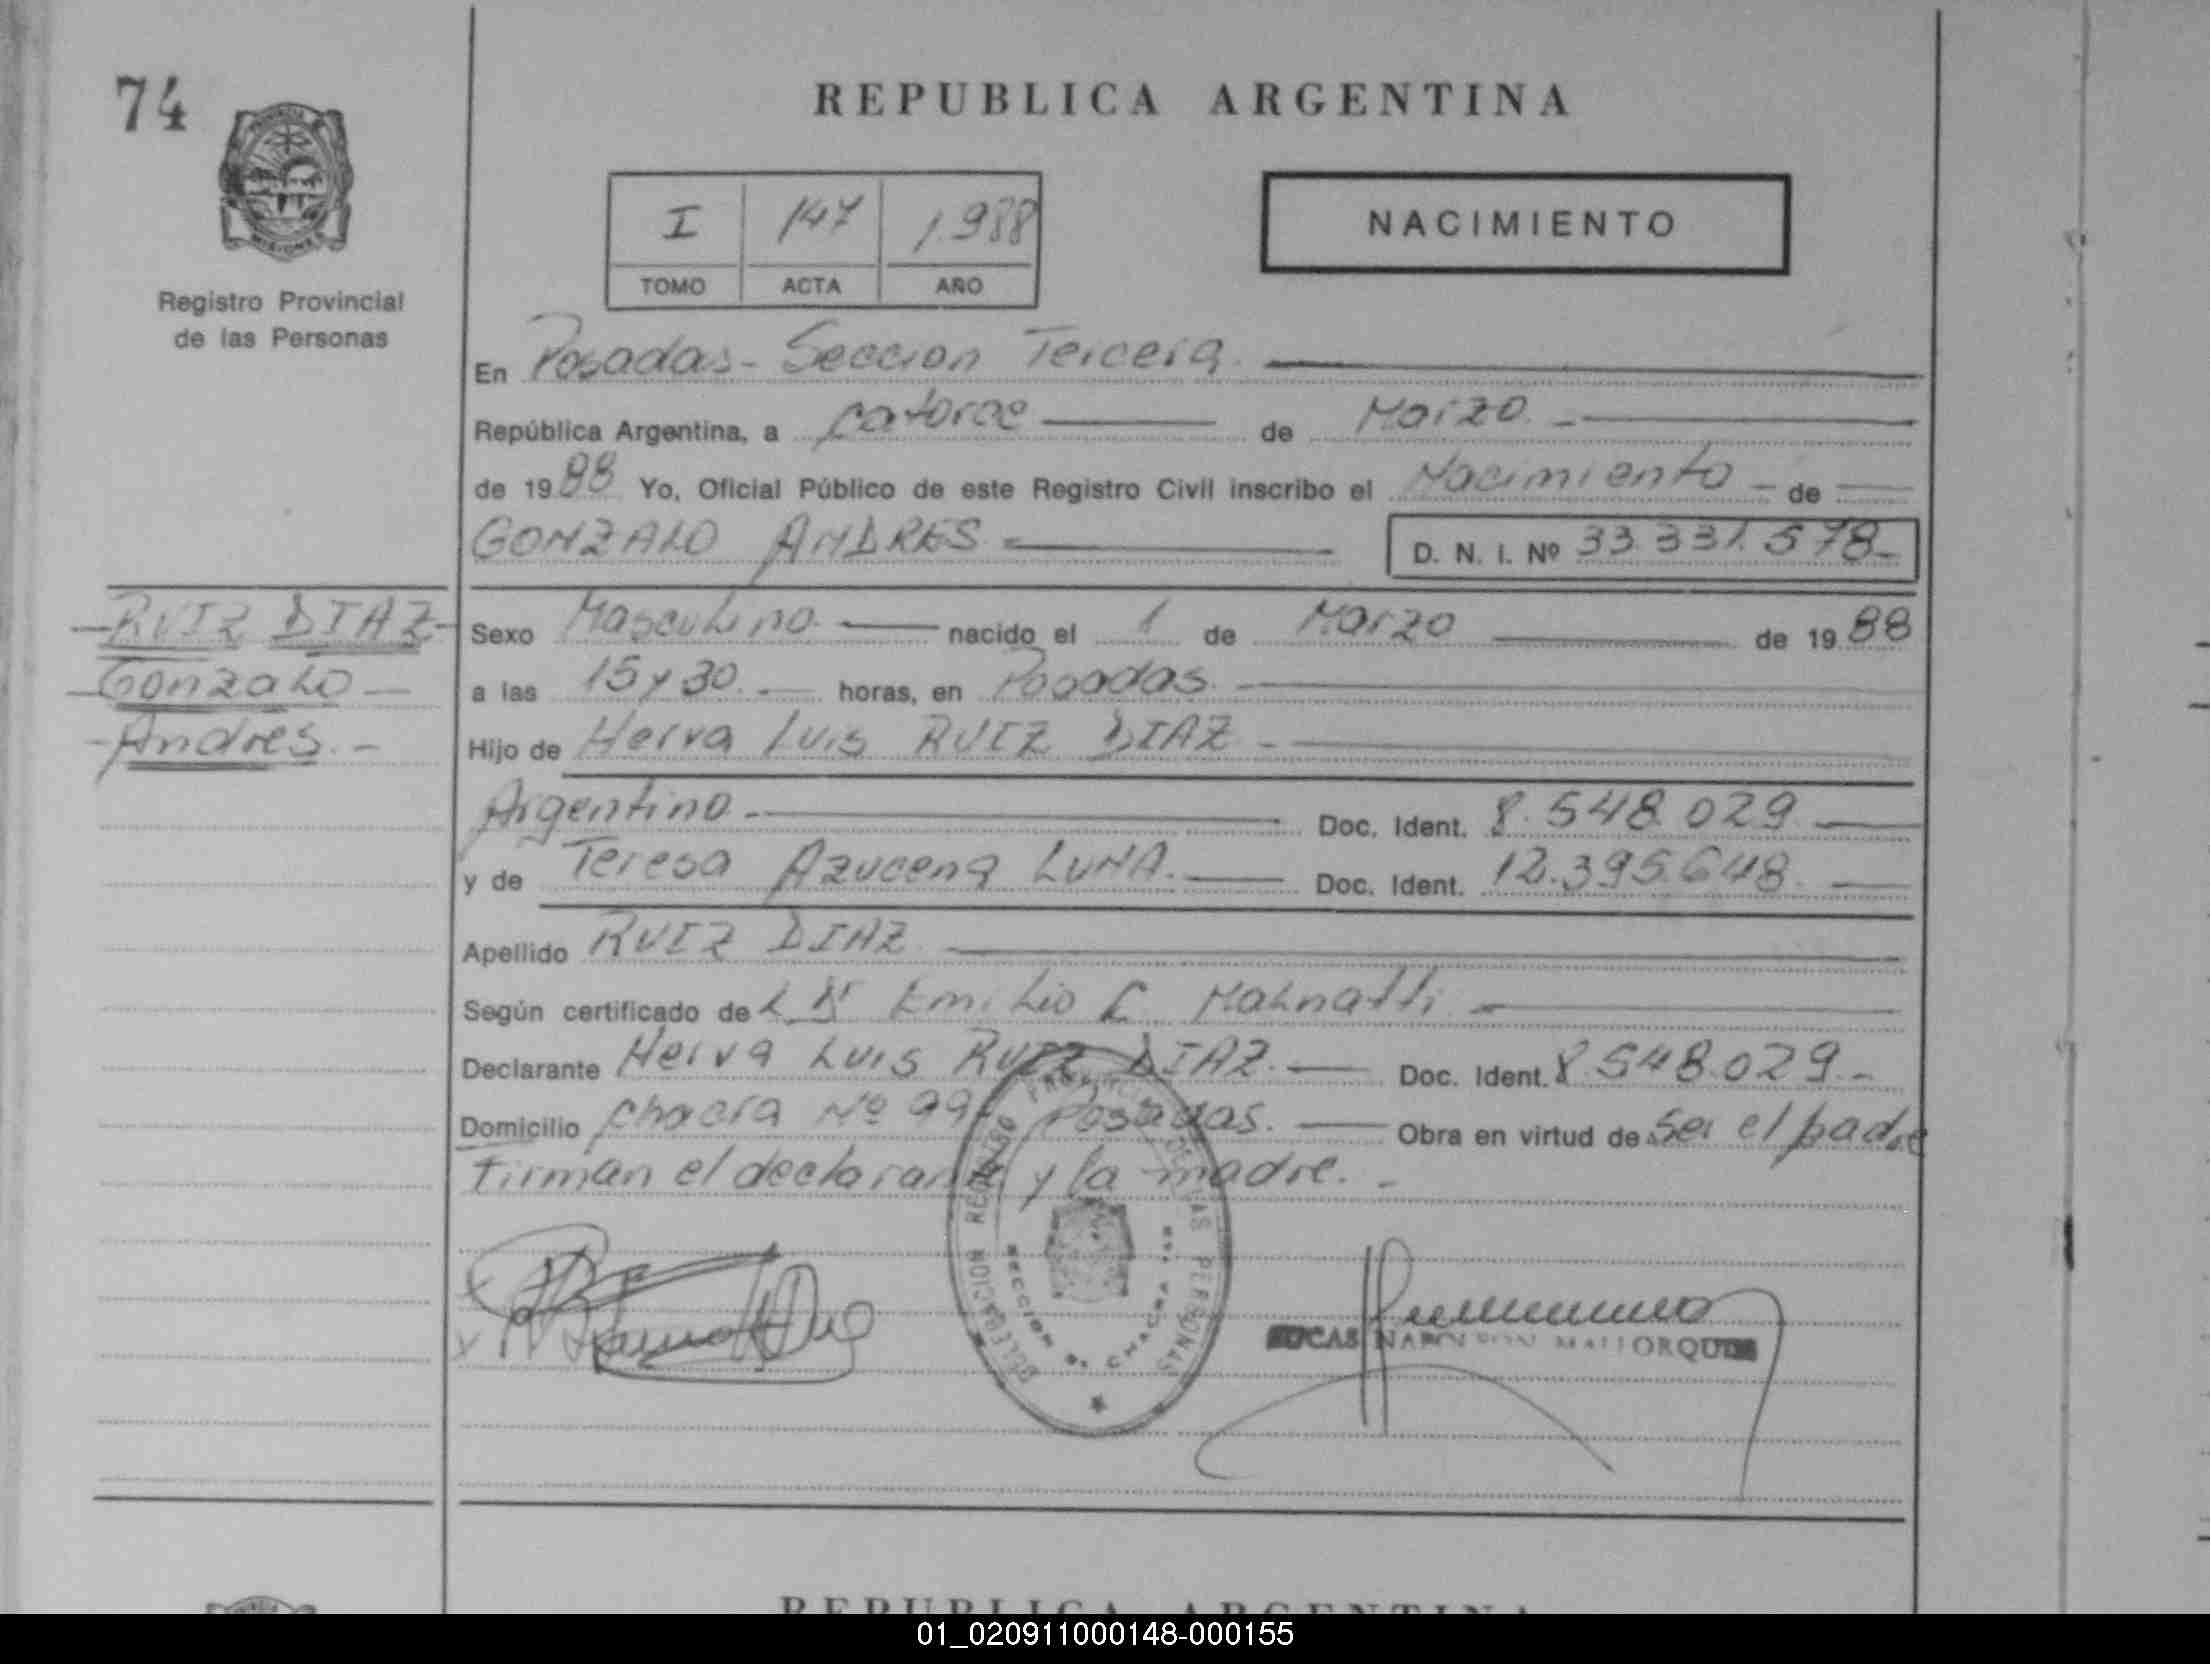 74
REPUBLICA ARGENTINA
PROVINCIA
MISIONES
Registro Provincial
de las Personas
I 147 1.988
TOMO ACTA AÑO
NACIMIENTO
En Posadas - Seccion Tercera.
República Argentina, a catorce de Marzo.
de 1988 Yo, Oficial Público de este Registro Civil inscribo el Nacimiento - de
GONZALO ANDRES D. N. I. Nº 33.331.578
RUIZ DIAZ
Gonzalo
Andres. -
Sexo Masculino nacido el 1 de Marzo de 1988
a las 15 y 30. horas, en Posadas.
Hijo de Herva Luis RUIZ DIAZ -
Argentino Doc. Ident. 8.548.029
y de Teresa Azucena LUNA. Doc. Ident. 12.395.648.
Apellido RUIZ DIAZ
Según certificado de Emilio Malnatti
Declarante Herva Luis RUIZ DIAZ. Doc. Ident. 8.548.029. -
Domicilio chacra Nº 99- Posadas. Obra en virtud de ser el padre
Firman el declarante y la madre. -
DELEGACION REGISTRO PROVINCIAL DE LAS PERSONAS
SECCION CHACRA
LUCAS NAPOLEON MALLORQUIN
REPUBLICA ARGENTINA
01_020911000148-000155